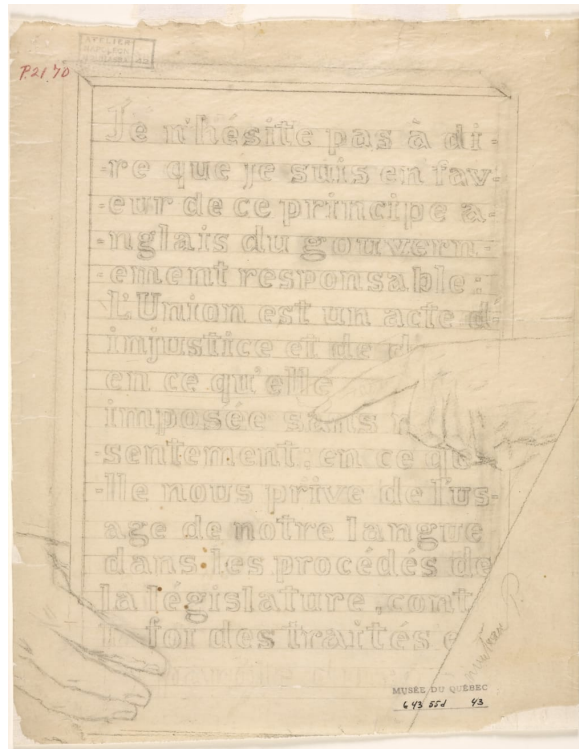 ATELIER
NAPOLEON
P.21.70
Je n'hésite pas à di-
-re que je suis en fav-
-eur de ce principe a-
-nglais du gouvern-
-ement responsable:
L'Union est un acte d'
injustice et de
en ce qu'elle
imposée sans
-sentement: en ce qe
-lle nous prive de l'us-
age de notre langue
dans les procédés de
la législature, cont
foi des traités e
MUSÉE DU QUÉBEC
643 55d 43